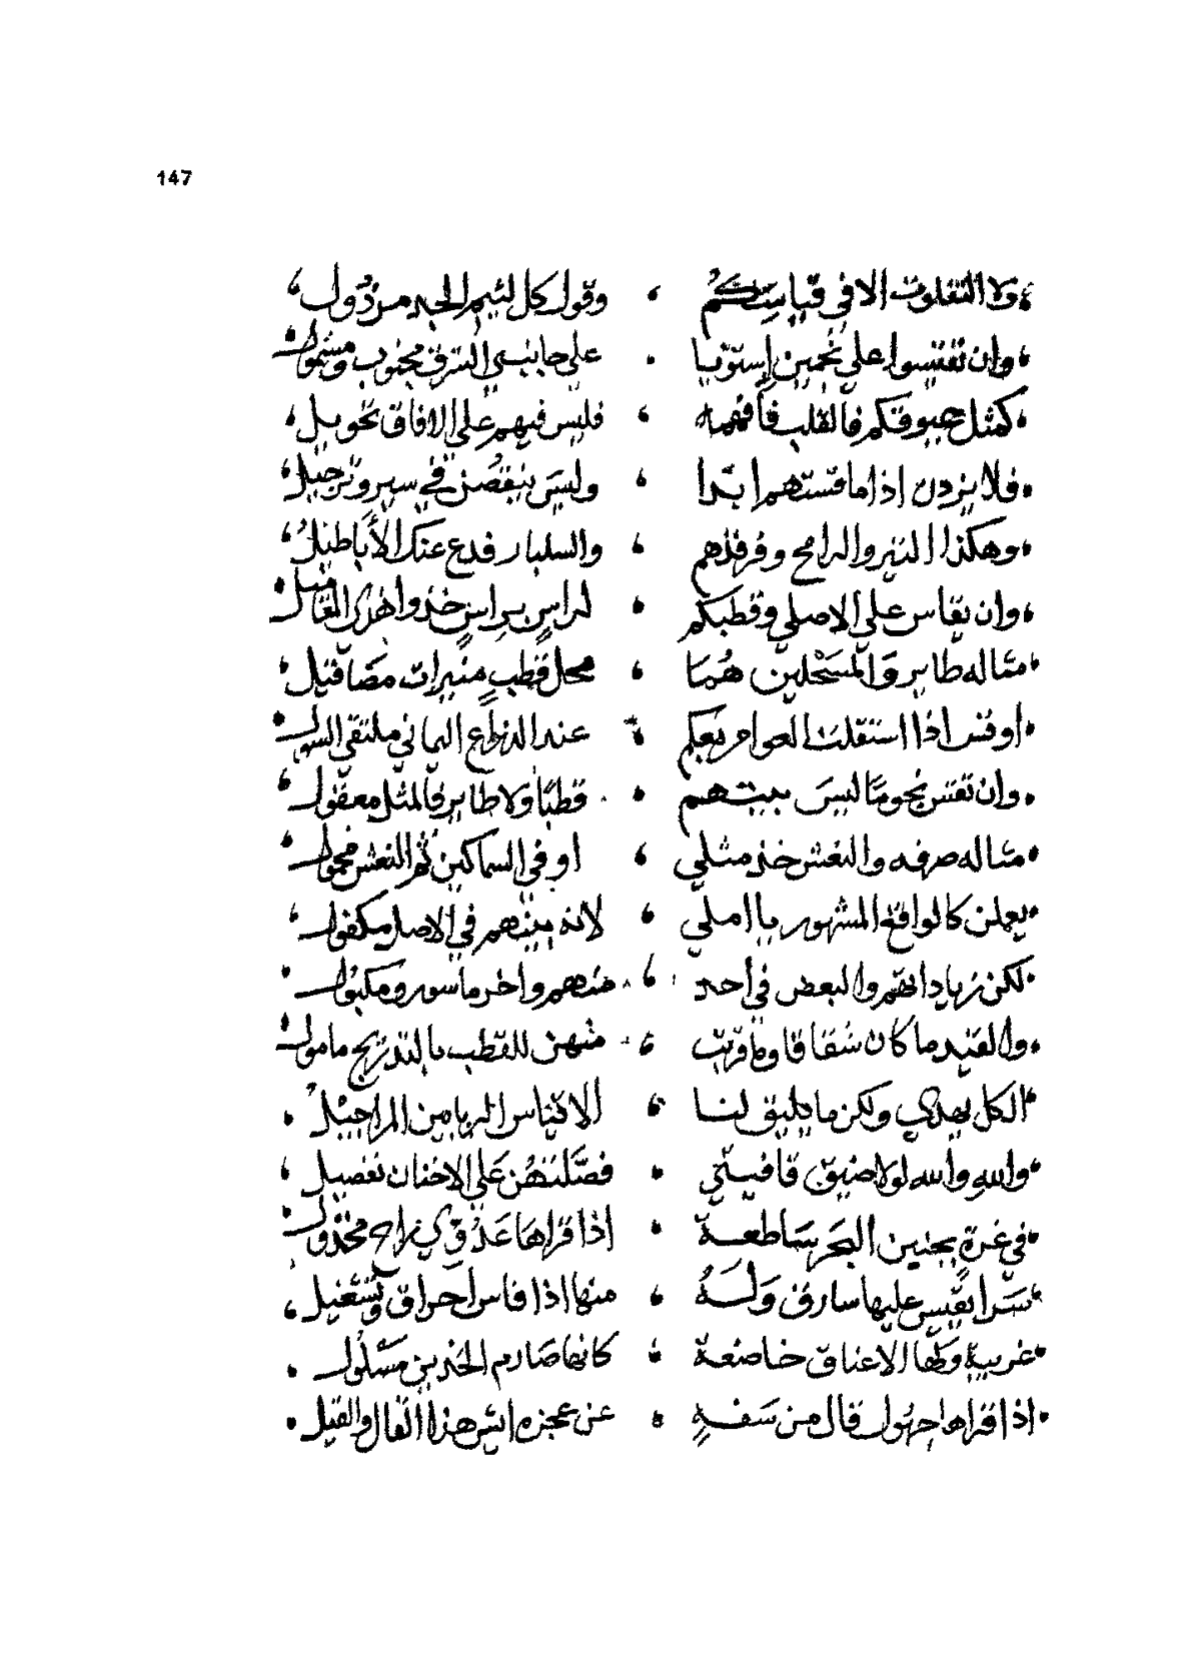 147
التفاوت الا في قياسكم ، وقول كل لئيم الجد مرذول
وان تقيسوا على نجمين استويا . على جانبي الشرق مجنوب ومشمول
كمثل عيوقكم فالقلب فافهمه ، فليس فيهم على الافاق تحويل
فلا يزدن اذا ما قستهم ابدا ، وليس ينقصن في سير وترحيل
وهكذا النير والرامح وفرقدهم ، والسلبار فدع عنك الأباطيل
وان يقاس على الاصلي وقطبكم ، براس خذ واهدى
مثاله طاير والمسحلين هما ، محل قطب منيرات
اذا استقلت العوام ، عند الذراع اليماني ملتقى
وان تقس نجوما ليس بيتهم ، قطبا ولا طاير فالمثل معقول
مثاله صرفه والنعش خذ مثلي ، او في السماكين ثم النعش محمول
كالواقع المشهور يا املي ، لانه بينهم في الاصل مكفول
لكن زياداتهم والبعض في احد ، منهم واخر ماسور ومكبول
والقيد ما كان شقاقا وما قربت ، منهن للقطب بالتدريج مامول
الكل يهدي ولكن ما يليق لنا ، الا قياس الريا من المراجيل
والله والله لولا ضيق قافيتي . فصلتهن على الاخنان تفصيل
في غرة بجنين البحر ساطعة . اذا قراها عدوي راح مخذول
سرا يقيس عليها سارق وله ، منها اذا قاس احراق وتشعيل
غريبة ولها الاعناق خاضعة ، كانها صارم الخدين مسلول
اذا قراها جهول قال من سفه ، عن عجزه ايش هذا القال والقيل